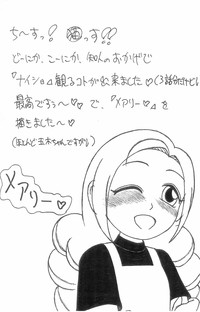 ち～すっ!　猫っす!!
どーにか、こーにか、知人のおかげで
『ナイショ』観るコトが出来ました♡(3話分だけど)
最高ですぅ～♡ で、『メアリー♡』を
描きました～♡
(ほとんど玉木ちゃんですが)
メアリー♡